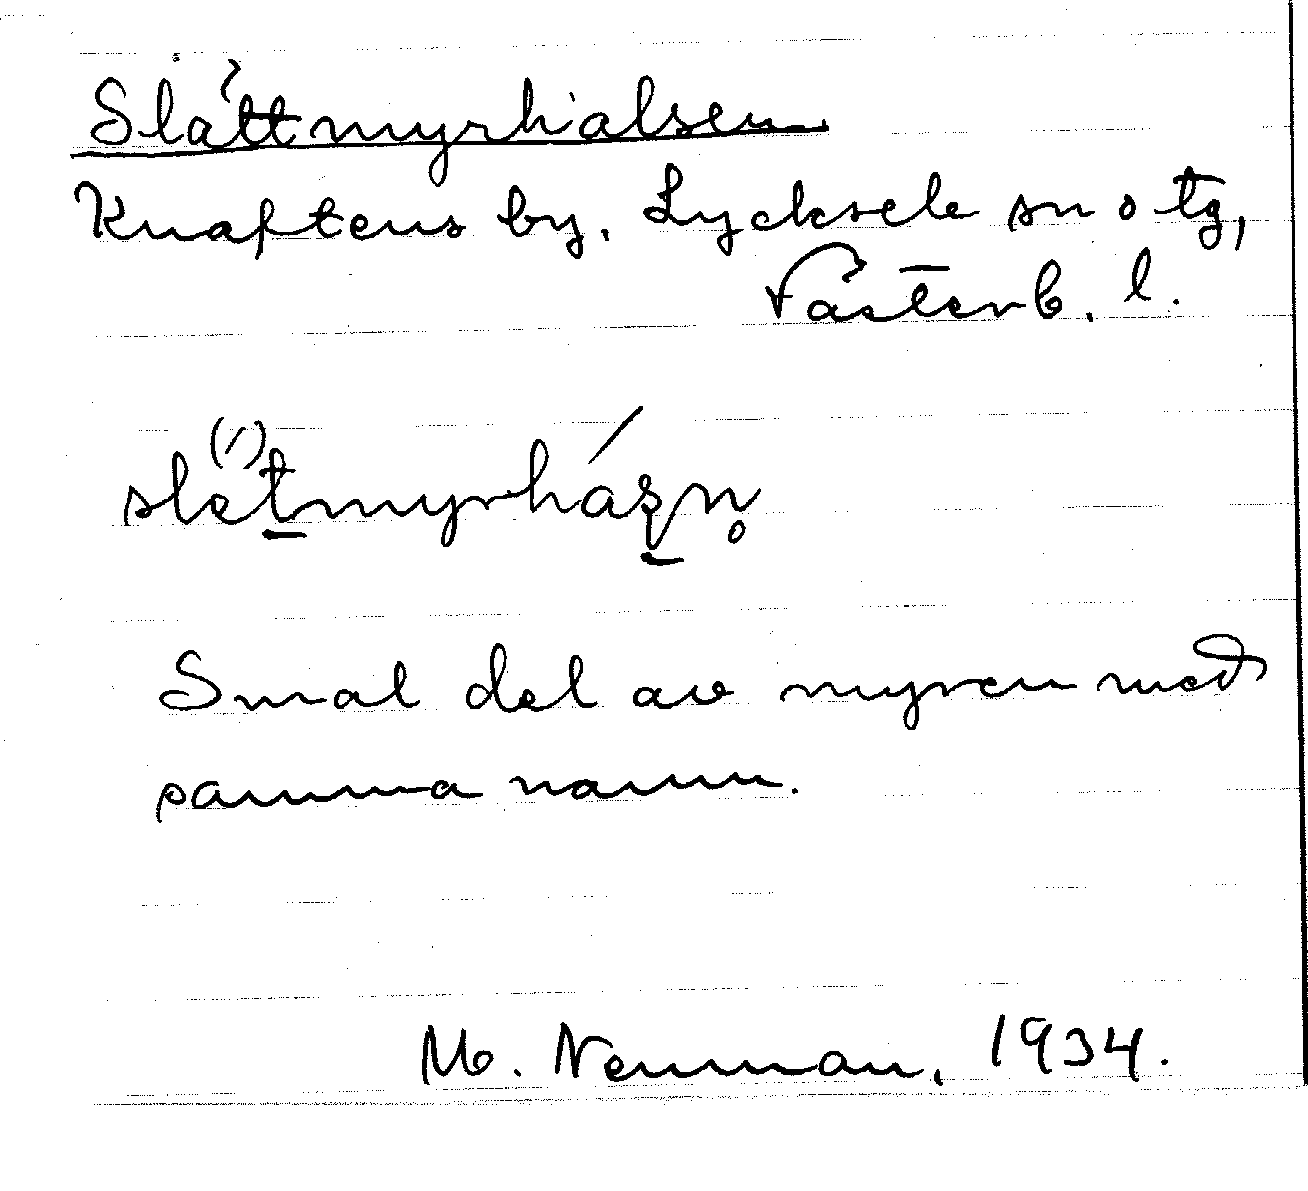 Slåttmyrhalsen
Knaftens by. Lycksele sn o tg,
Västerb. l.
Smal del av myren med
samma namn.
M. Neuman, 1934.